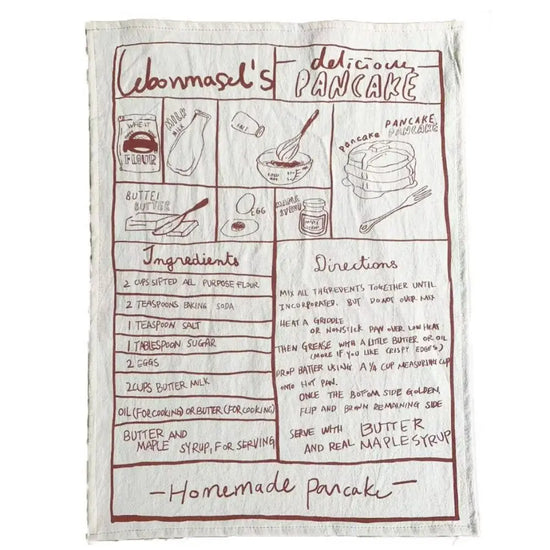 Lebonmasel's
delicious
PANCAKE
WHEAT
FLOUR
MILK
MILK
PANCAKE
PANCAKE
Pancake
BUTTER
EGG
MAPLE
SYRUP
Ingredients
2 CUPS SIFTED ALL PURPOSE FLOUR
2 TEASPOONS BAKING SODA
1 TEASPOON SALT
1 TABLESPOON SUGAR
2 EGGS
2 CUPS BUTTER MILK
OIL (FOR COOKING) OR BUTTER (FOR COOKING)
BUTTER AND
MAPLE SYRUP, FOR SERVING
Directions
MIX ALL INGREDIENTS TOGETHER UNTIL
INCORPORATED. BUT DO NOT OVER MIX
HEAT A GRIDDLE
OR NONSTICK PAN OVER LOW HEAT
THEN GREASE WITH A LITTLE BUTTER OR OIL
(MORE IF YOU LIKE CRISPY EDGES)
DROP BATTER USING A 1/4 CUP MEASURING CUP
ONTO HOT PAN.
ONCE THE BOTTOM SIDE GOLDEN,
FLIP AND BROWN REMAINING SIDE
SERVE WITH BUTTER
AND REAL MAPLE SYRUP
-Homemade pancake-